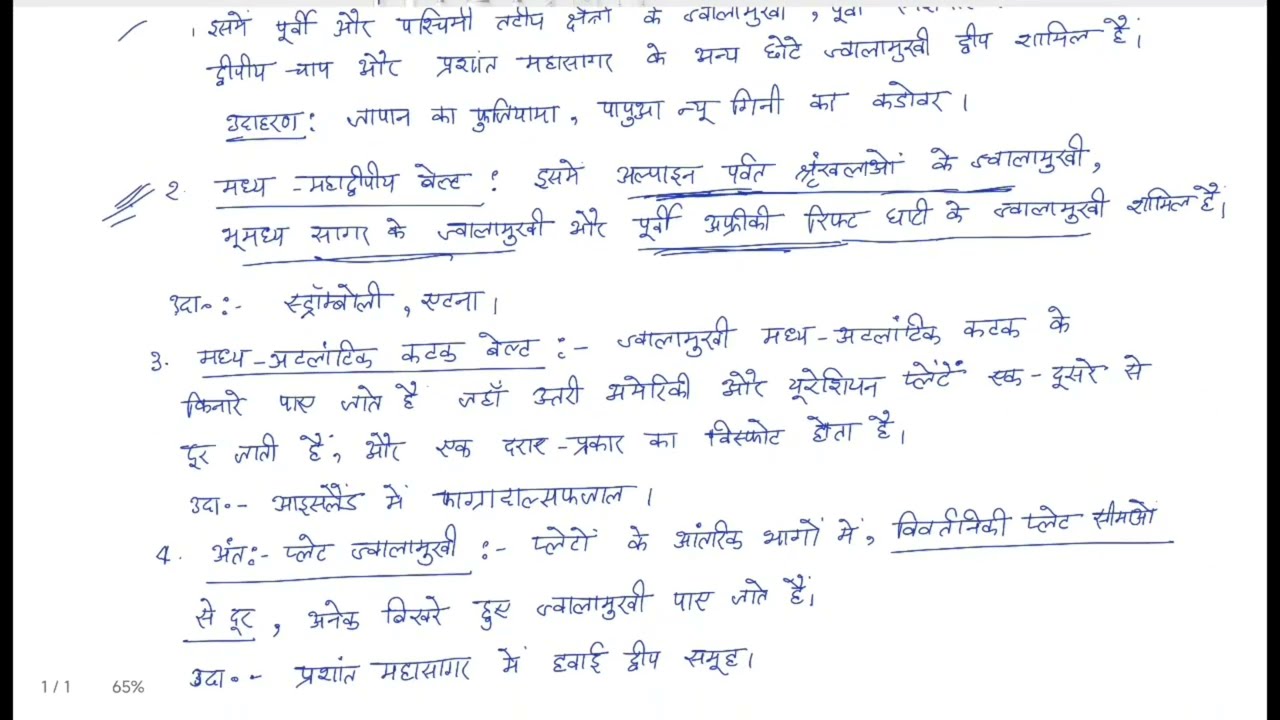 । इसमें पूर्वी और पश्चिमी तटीय क्षेत्रों के ज्वालामुखी , पूर्वी
द्वीपीय चाप और प्रशांत महासागर के अन्य छोटे ज्वालामुखी द्वीप शामिल हैं।
उदाहरण: जापान का फुजियामा , पापुआ न्यू गिनी का कडोवर ।
2. मध्य -महाद्वीपीय बेल्ट : इसमें अल्पाइन पर्वत श्रृंखलाओं के ज्वालामुखी,
भूमध्य सागर के ज्वालामुखी और पूर्वी अफ्रीकी रिफ्ट घाटी के ज्वालामुखी शामिल हैं।
उदा॰:- स्ट्रॉम्बोली , एटना ।
3. मध्य-अटलांटिक कटक बेल्ट :- ज्वालामुखी मध्य-अटलांटिक कटक के
किनारे पाए जाते हैं जहाँ उत्तरी अमेरिकी और यूरेशियन प्लेटें एक-दूसरे से
दूर जाती हैं, और एक दरार-प्रकार का विस्फोट होता है।
उदा॰- आइसलैंड में फाग्रादाल्सफजाल ।
4. अंतः- प्लेट ज्वालामुखी :- प्लेटों के आंतरिक भागों में, विवर्तनिकी प्लेट सीमाओं
से दूर , अनेक बिखरे हुए ज्वालामुखी पाए जाते हैं।
उदा॰- प्रशांत महासागर में हवाई द्वीप समूह।
1 / 1 65%